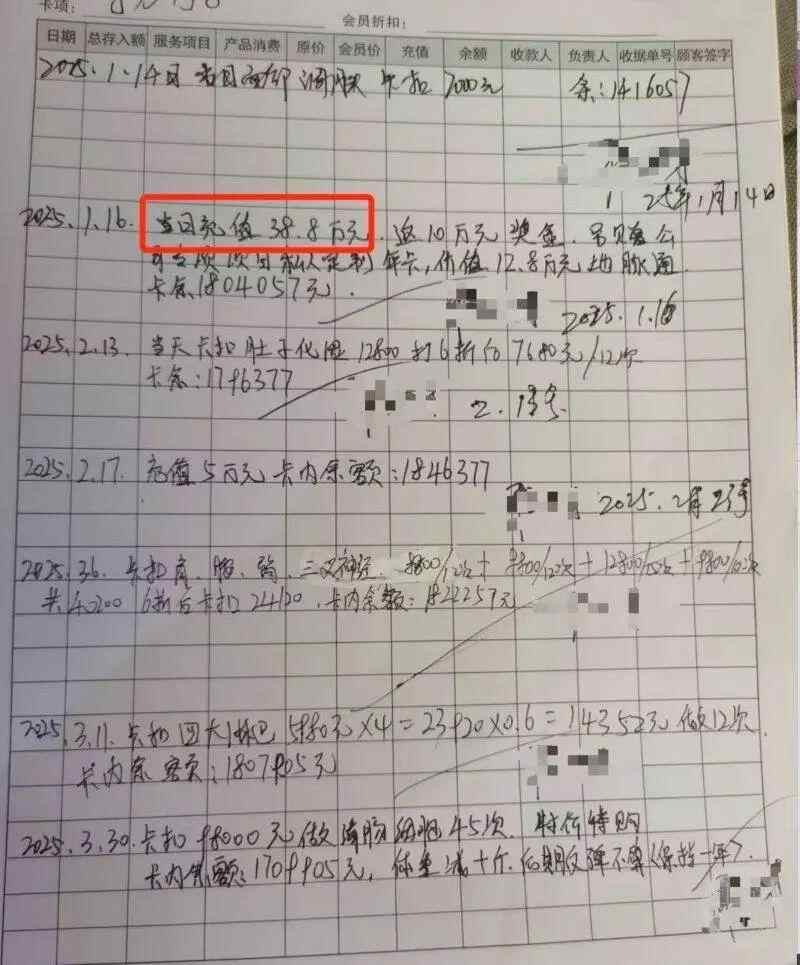 卡项:
会员折扣:
日期 总存入额 服务项目 产品消费 原价 会员价 充值 余额 收款人 负责人 收据单号 顾客签字
2025.1.14日 卡扣 7000元 余:1416057
25年1月14日
2025.1.16. 当日充值38.8万元. 返10万元奖金.
私人定制年卡,价值12.8万元地脉通
卡余1804057元.
2025.1.16
2025.2.13. 当天卡扣肚子化湿12800打6折后7680元/12次
卡余:1796377
2.13号.
2025.2.17. 充值5万元 卡内余额:1846377
2025.2月23号
2025.3.6. 卡扣肩、腰、 三叉神经. 9800/12次+9800/12次+12800/12次+9800/12次
共40200 6折后卡扣24120.卡内余额:1822257元
2025.3.11. 卡扣四大淋巴5980元×4=23920×0.6=14352元 做12次.
卡内余额:1807905元
2025.3.30.卡扣98000元做 45次. 特价特购
卡内余额:1709905元, 体重减十斤.后期反弹不算(保持一年).